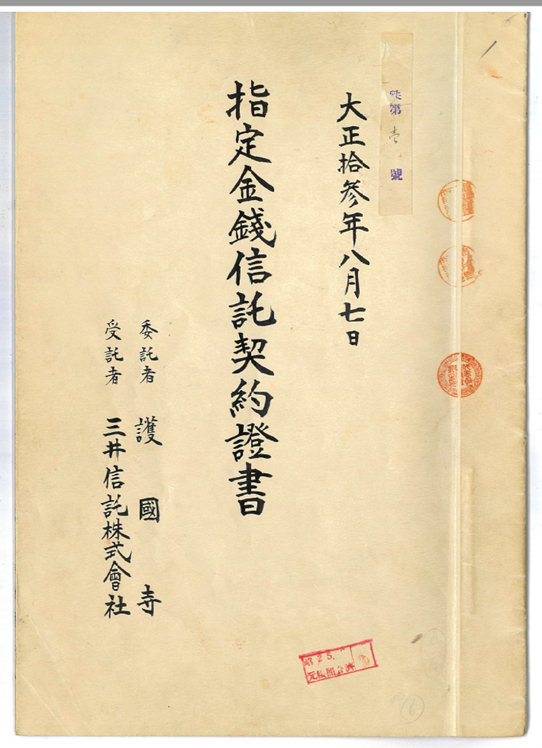 第壱號
大正拾参年八月七日
指定金錢信託契約證書
委託者 護國寺
受託者 三井信託株式會社